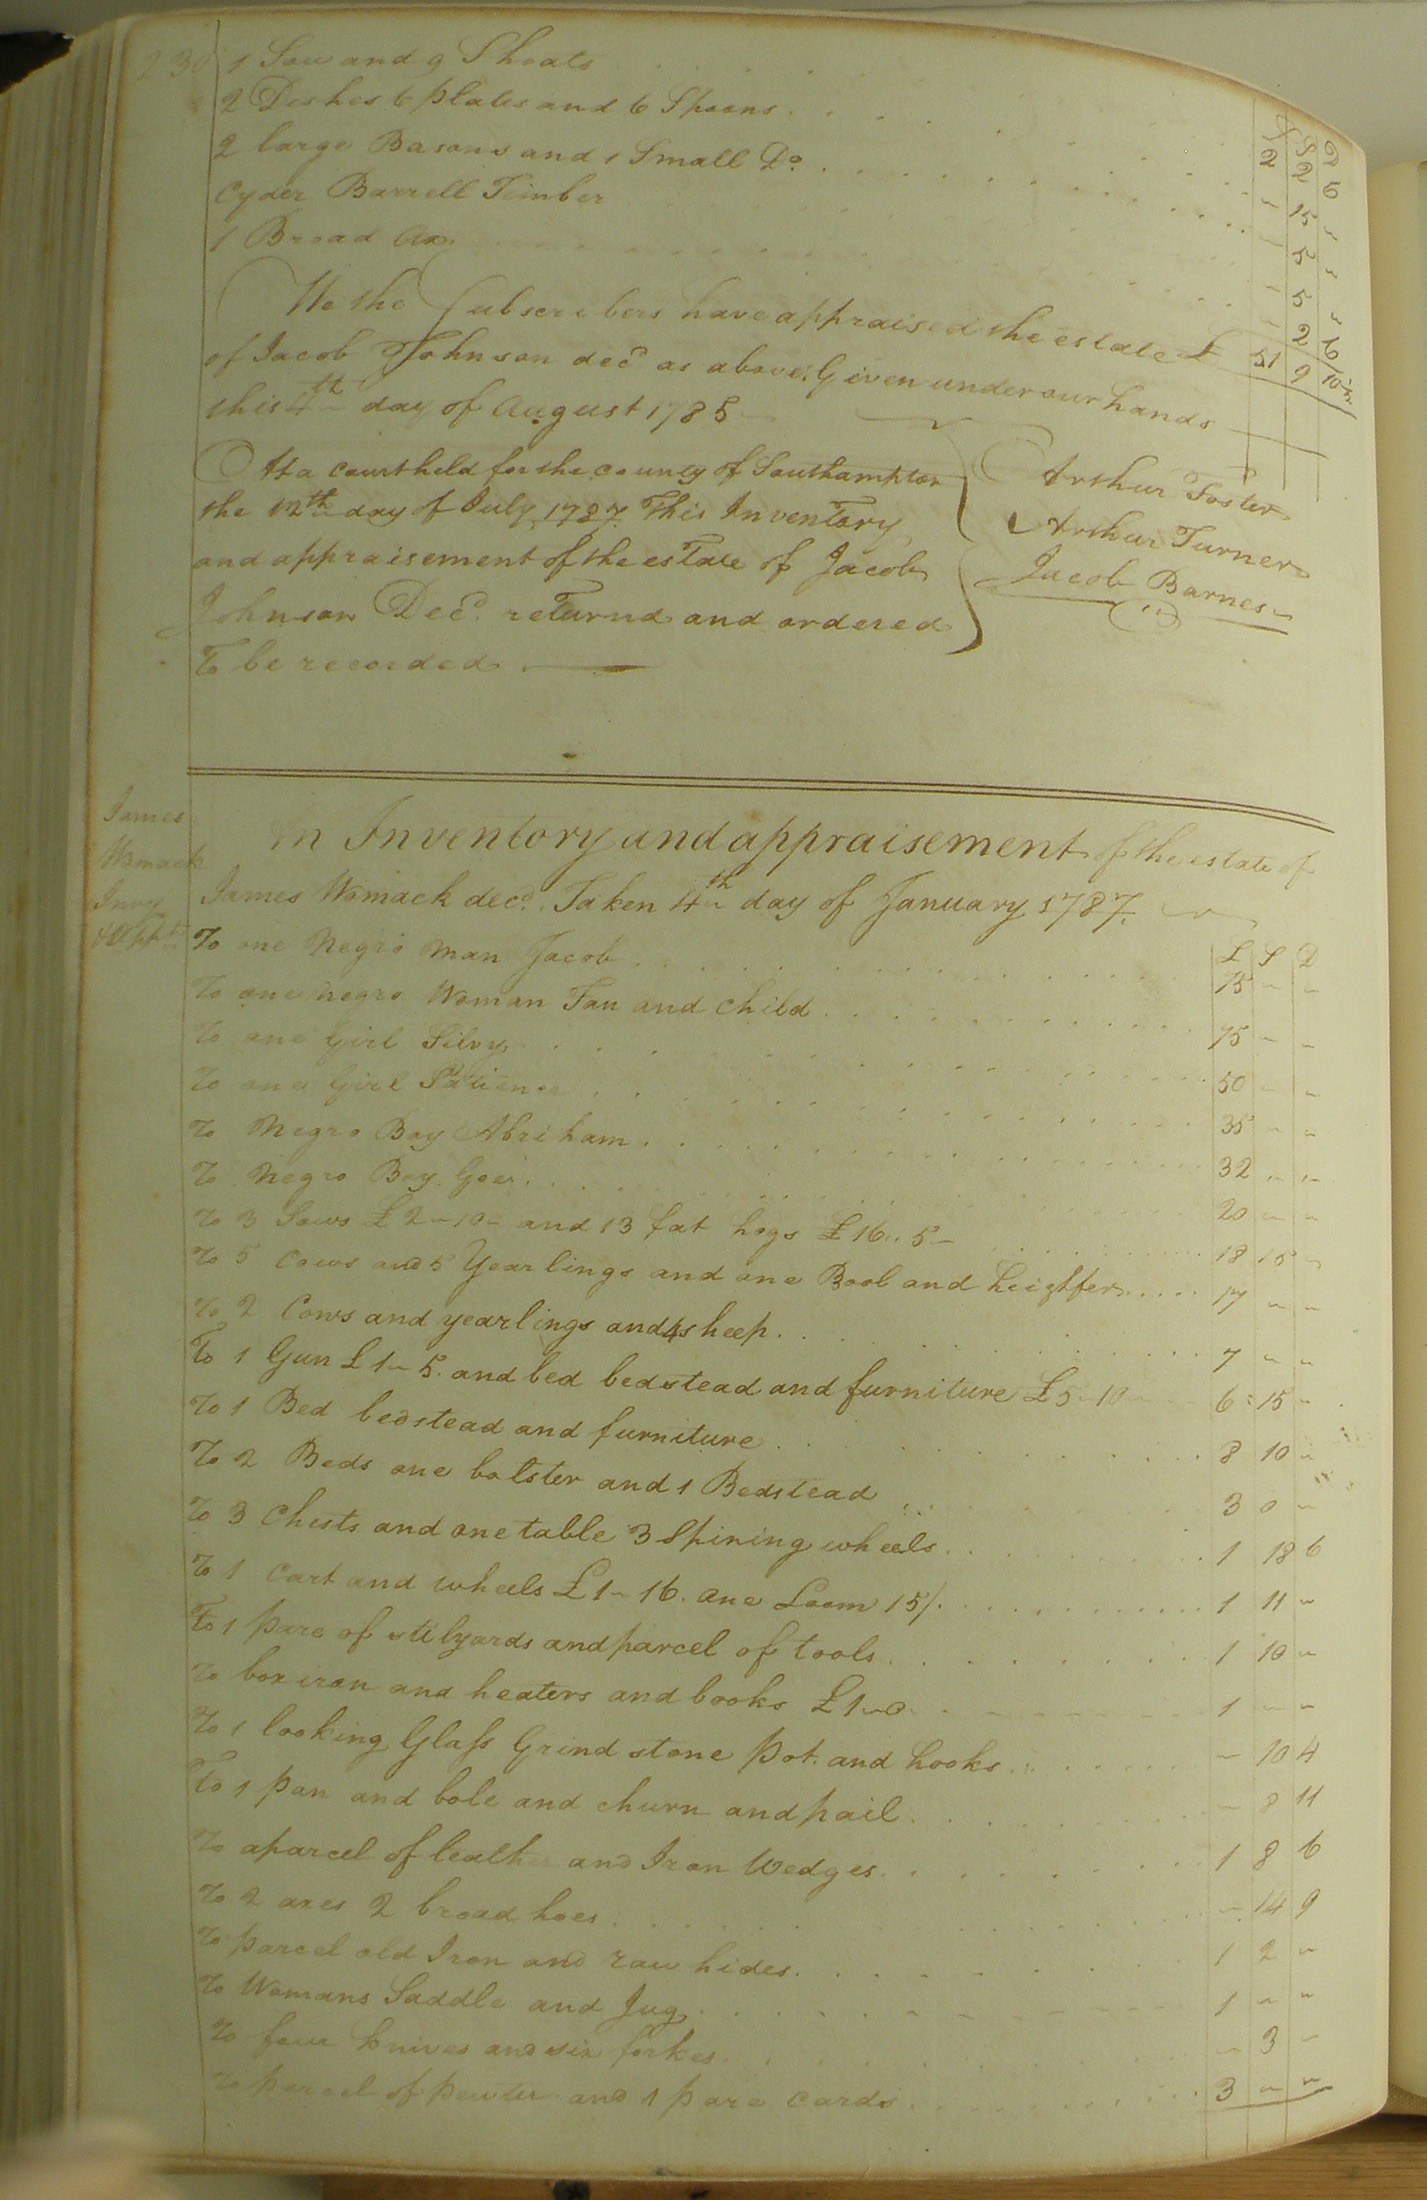 230 1 Sow and 9 Shoats
£ S D
2 Dishes 6 plates and 6 Spoons 2 2 6
2 large Basons and 1 Small Do. " 15 "
Cyder Barrell Timber " 5 "
1 Broad ax " 5 "
" 2 6
We the Subscribers have appraised the estate £ 51 9
of Jacob Johnson decd as above. Given under our hands
this 4th day of August 1785
At a court held for the county of Southampton
the 12th day of July 1787 This Inventory
and appraisement of the estate of Jacob
Johnson Decd. returnd and ordered
To be recorded
Arthur Foster
Arthur Turner
Jacob Barnes
James
Womack
Invy
An Inventory and appraisement of the estate of
James Womack decd. Taken 4th day of January 1787
£ S D
To one Negro man Jacob 75 " "
To one negro Woman Fan and child 75 " "
To one Girl Silvy 50 " "
To one Girl Patience 35 " "
To Negro Boy Abriham 32 " "
To Negro Boy 20 " "
To 3 Sows £2-10- and 13 fat hogs £16..5- 18 15 "
To 5 Cows and 5 Yearlings and one Bool and heighfer 17 " "
To 2 Cows and yearlings and 4 sheep 7 " "
To 1 Gun £1-5. and bed bedstead and furniture £5-10 6:15 "
To 1 Bed bedstead and furniture 8 10 "
To 2 Beds one bolster and 1 Bedstead 3 0 "
To 3 Chests and one table 3 Spining wheels 1 18 6
To 1 Cart and wheels £1-16. one Loom 15/. 1 11 "
To 1 pare of stilyards and parcel of tools 1 10 "
To box iron and heaters and books £1-0 1 " "
To 1 looking Glass Grind stone pot. and hooks - 10 4
To 1 pan and bole and churn and pail - 8 11
To a parcel of leather and Iron Wedges 1 8 6
To 2 axes 2 broad hoes - 14 9
To parcel old Iron and raw hides 1 2 "
To Womans Saddle and Jug 1 " "
To four knives and six forkes - 3 "
To parcel of pewter and 1 pare cards 3 " "